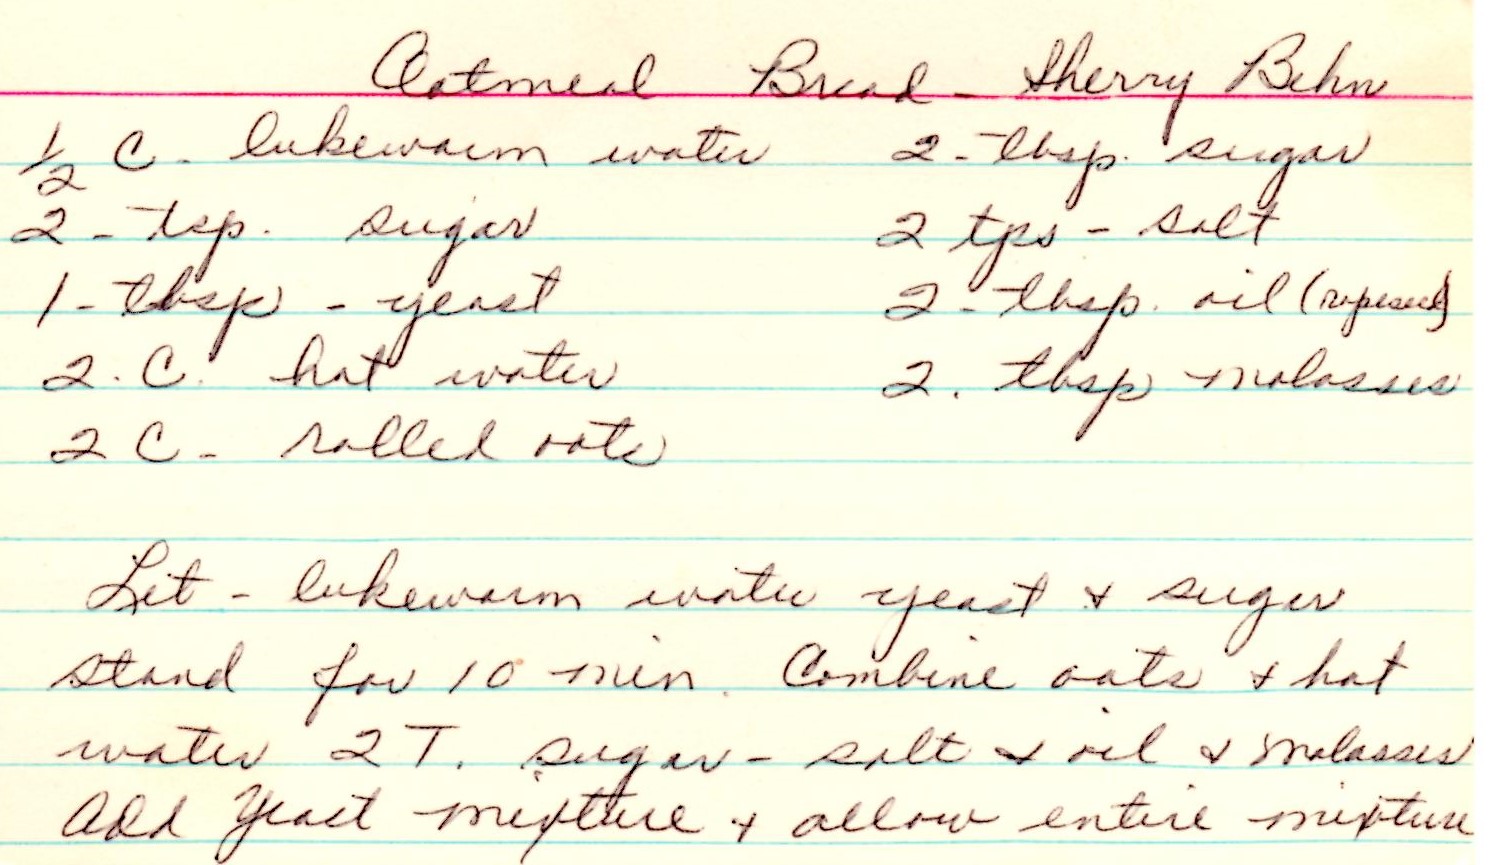 Oatmeal Bread - Sherry Behn
1/2 C - lukewarm water 2 - tbsp. sugar
2 - tsp. sugar 2 tps - salt
1 - tbsp - yeast 2 - tbsp. oil (rapeseed)
2. C. hot water 2. tbsp molasses
2 C - rolled oats
Let - lukewarm water yeast & sugar
stand for 10 min. Combine oats & hot
water 2 T. sugar - salt & oil & molasses
Add yeast mixture & allow entire mixture